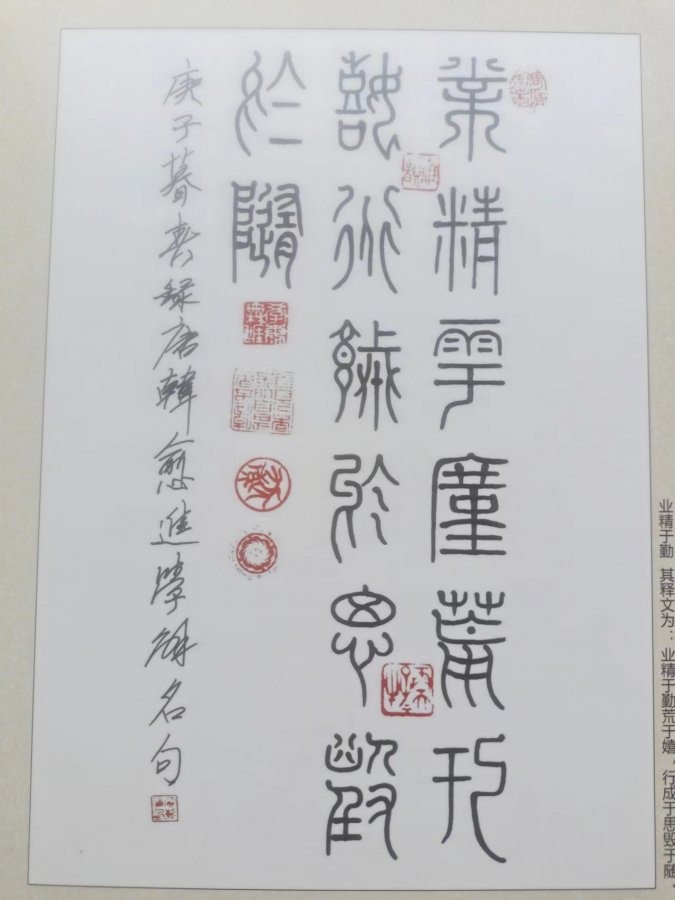 業精雩廑荒于
嬉行成於思毀
於隨
庚子暮春録唐韓愈進學解名句
业精于勤 其释文为：业精于勤荒于嬉，行成于思毁于随。